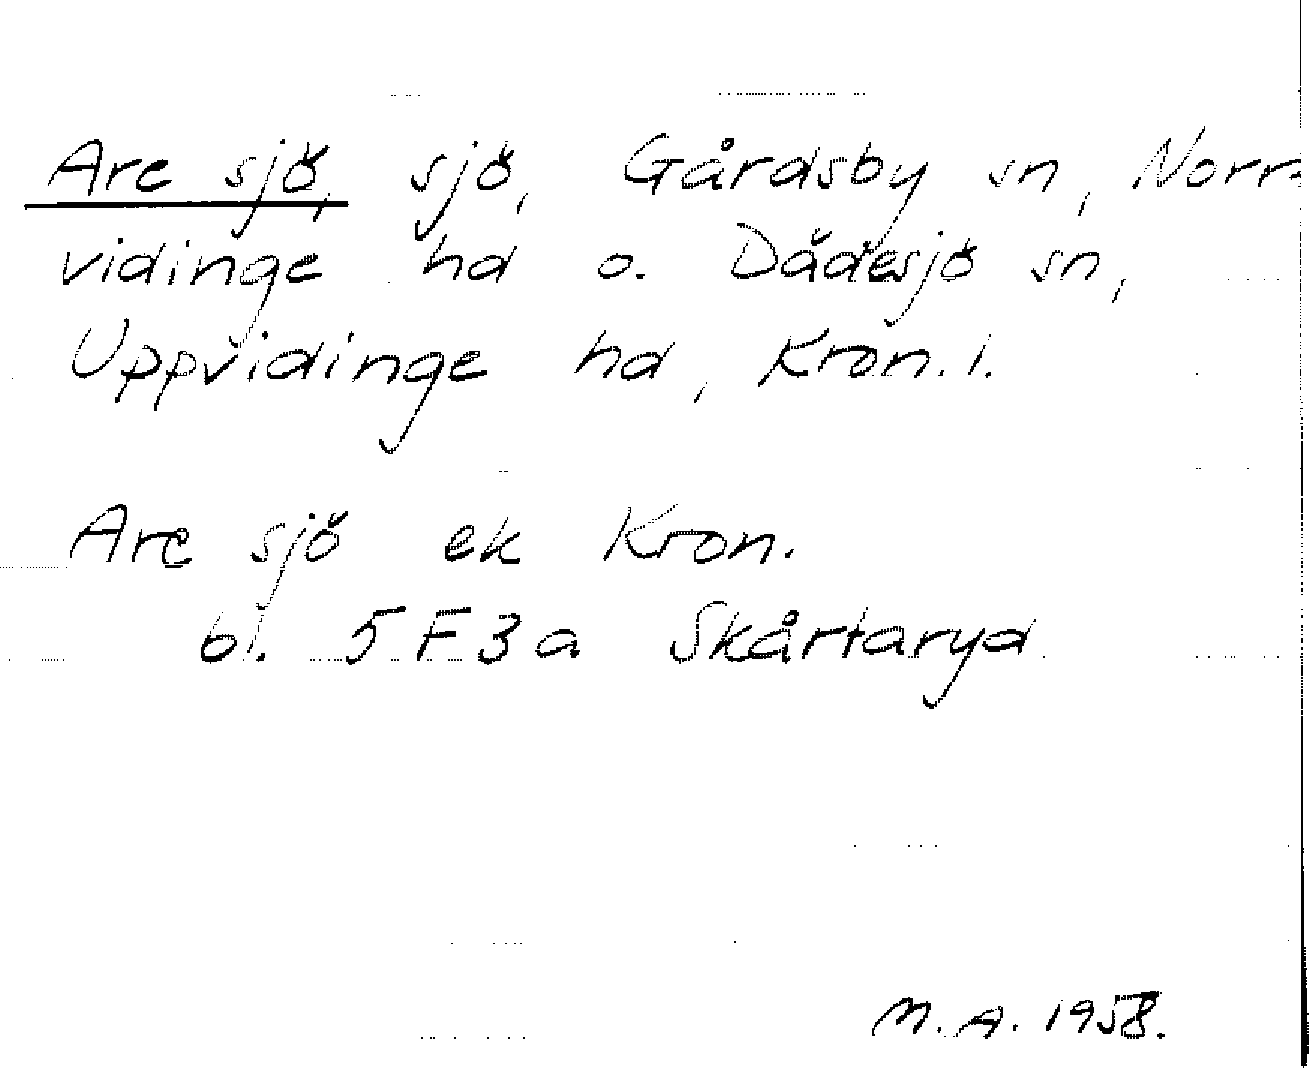 Are sjö, sjö, Gårdsby sn, Norr-
vidinge hd o. Dädesjö sn,
Uppvidinge hd, Kron. l.
Are sjö ek Kron.
bl. 5F3a Skårtaryd
M.A. 1958.